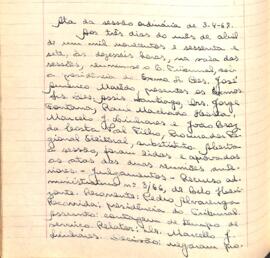 Ata da sessão ordinária de 3-4-67.
Aos três dias do mês de abril
de um mil novecentos e sessenta e
sete, às dezesseis horas, na sala de
sessões, reuniu-se o E. Tribunal, sob
a presidência do Exmo. Sr. Des. José
Américo Macêdo, presentes os Exmos.
Srs. Des. Assis Santiago, Drs. Jorge
Fontana,
Marcelo J. Linhares e João Braz
da Costa Val Filho, Procurador Re-
gional Eleitoral, substituto. Aberta
a sessão, foram lidas e aprovadas
as atas das duas reuniões ante-
riores. - Julgamentos - Recurso ad-
ministrativo nº 3/66, de Belo Hori-
zonte. Recorrente: Pedro
Recorrida: presidência do Tribunal.
Assunto: contagem de tempo de
serviço. Relator: Dr. Marcelo J.
Linhares. Decisão: negaram pro-